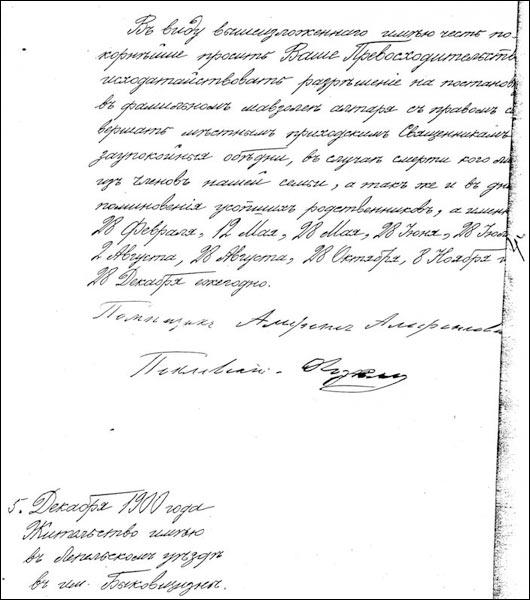 Въ виду вышеизложеннаго имѣю честь по-
корнѣйше просить Ваше Превосходительств
исходатайствовать разрѣшеніе на постановк
въ фамильномъ мавзолеѣ алтаря съ правомъ с
вершать мѣстнымъ приходскимъ Священникамъ
заупокойныя обѣдни, въ случаѣ смерти кого ли
изъ членовъ нашей семьи, а такъ же и въ дн
поминовенія усопшихъ родственниковъ, а имен
28 Февраля, 12 Мая, 28 Мая, 28 Іюня, 28 Іюл
2 Августа, 28 Августа, 28 Октября, 8 Ноября и
28 Декабря ежегодно.
Помѣщикъ
5. Декабря 1900 года
Жительство имѣю
въ Лепельскомъ уѣздѣ
въ им. Быковщизны.